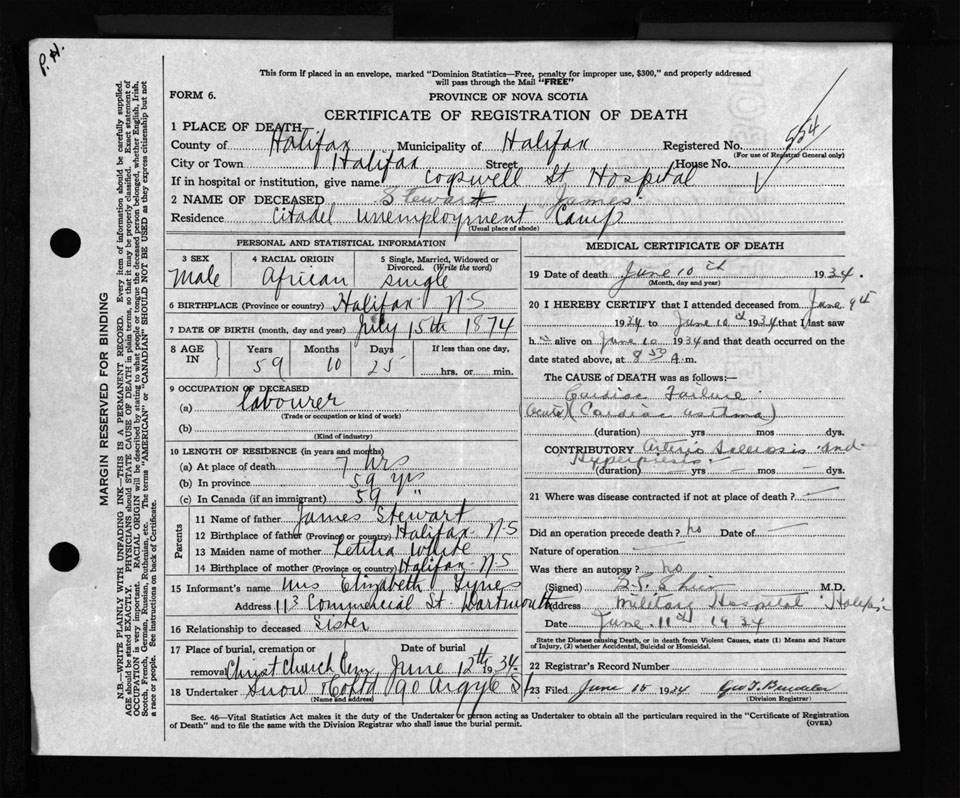 P.H.
This form if placed in an envelope, marked "Dominion Statistics—Free, penalty for improper use, $300," and properly addressed
will pass through the Mail "FREE"
FORM 6.
PROVINCE OF NOVA SCOTIA
CERTIFICATE OF REGISTRATION OF DEATH
1 PLACE OF DEATH
County of Halifax Municipality of Halifax Registered No. 554
(For use of Registrar General only)
City or Town Halifax Street House No.
If in hospital or institution, give name Cogswell St Hospital
2 NAME OF DECEASED Stewart James
Residence Citadel Unemployment Camp
(Usual place of abode)
MARGIN RESERVED FOR BINDING
N.B.—WRITE PLAINLY WITH UNFADING INK—THIS IS A PERMANENT RECORD. Every item of information should be carefully supplied.
AGE should be stated EXACTLY. PHYSICIANS should STATE CAUSE OF DEATH in plain terms, so that it may be properly classified. Exact statement of
OCCUPATION is very important. RACIAL ORIGIN will be described by stating to what people or tongue the deceased person belonged, whether English, Irish,
Scotch, French, German, Russian, Ruthenian, etc. The terms "AMERICAN" or "CANADIAN" SHOULD NOT BE USED as they express citizenship but not
a race or people. See instructions on back of Certificate.
PERSONAL AND STATISTICAL INFORMATION
3 SEX 4 RACIAL ORIGIN 5 Single, Married, Widowed or
Divorced. (Write the word)
Male African single
6 BIRTHPLACE (Province or country) Halifax N S
7 DATE OF BIRTH (month, day and year) July 15th 1874
8 AGE IN Years Months Days If less than one day,
59 10 25 hrs. or min.
9 OCCUPATION OF DECEASED
(a) labourer
(Trade or occupation or kind of work)
(b)
(Kind of industry)
10 LENGTH OF RESIDENCE (in years and months)
(a) At place of death 7 hrs
(b) In province 59 yrs
(c) In Canada (if an immigrant) 59 "
Parents
11 Name of father James Stewart
12 Birthplace of father (Province or country) Halifax N-S
13 Maiden name of mother Letitia White
14 Birthplace of mother (Province or country) Halifax N S
15 Informant's name Mrs Elizabeth Tynes
Address 113 Commercial St. Dartmouth
16 Relationship to deceased Sister
17 Place of burial, cremation or Date of burial
removal Christ Church Cem June 12th 1934
18 Undertaker Snow & Co Ltd 90 Argyle St
(Name and address)
MEDICAL CERTIFICATE OF DEATH
19 Date of death June 10th 1934.
(Month, day and year)
20 I HEREBY CERTIFY that I attended deceased from June 9th
1934 to June 10th 1934 that I last saw
h alive on June 10 1934 and that death occurred on the
date stated above, at 8 50 A m.
The CAUSE of DEATH was as follows:—
Cardiac Failure
(acute) (Cardiac asthma)
(duration) yrs mos dys.
CONTRIBUTORY Arterio Sclerosis and
Hyperpiesis
(duration) yrs mos dys.
21 Where was disease contracted if not at place of death? —
Did an operation precede death? no Date of —
Nature of operation —
Was there an autopsy? no
(Signed) M.D.
Address Military Hospital Halifax
Date June 11th 1934
State the Disease causing Death, or in death from Violent Causes, state (1) Means and Nature
of Injury, (2) whether Accidental, Suicidal or Homicidal.
22 Registrar's Record Number
23 Filed June 15 1934
(Division Registrar)
Sec. 46—Vital Statistics Act makes it the duty of the Undertaker or person acting as Undertaker to obtain all the particulars required in the "Certificate of Registration
of Death" and to file the same with the Division Registrar who shall issue the burial permit.
(OVER)